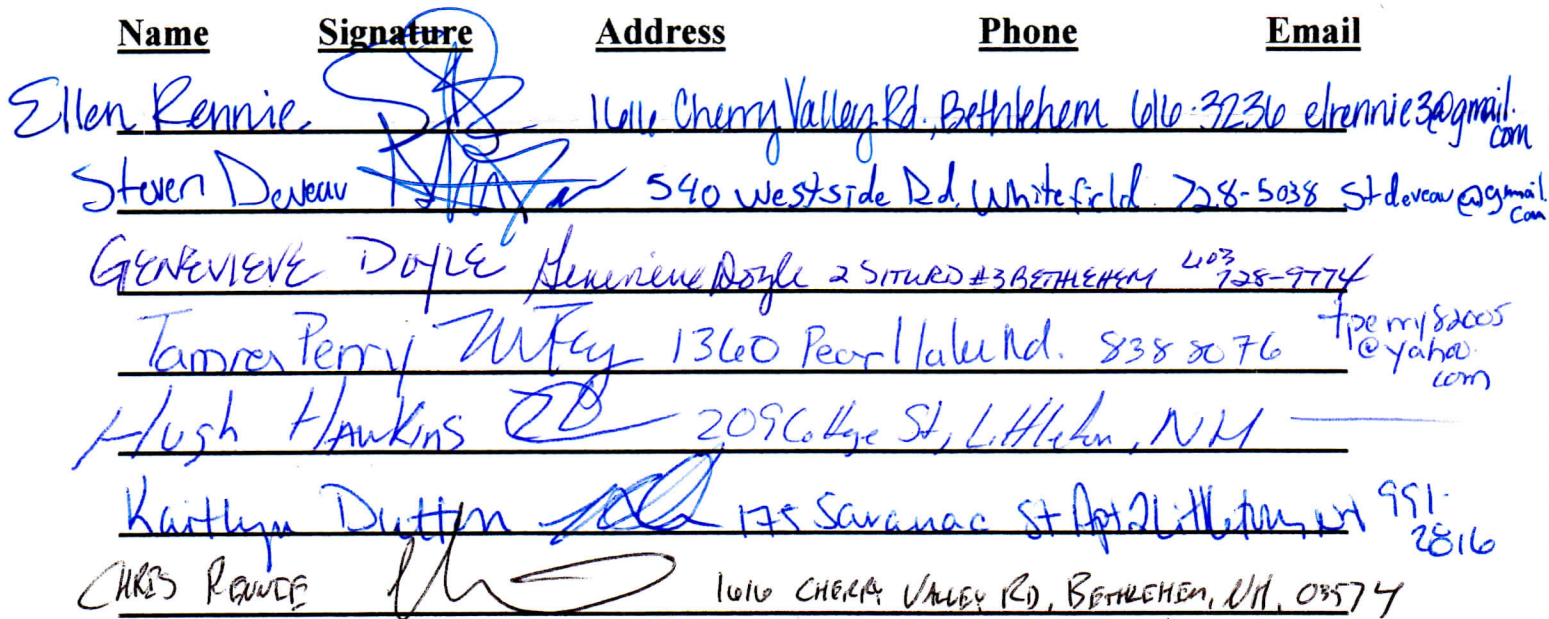 Name Signature Address Phone Email
Ellen Rennie 1616 Cherry Valley Rd., Bethlehem 616-3236 elrennie3@gmail.com
Steven Deveau 540 Westside Rd. Whitefield 728-5038 stdeveau@gmail.com
GENEVIEVE DOYLE Genevieve Doyle 2 SITU RD #3 BETHLEHEM 603 728-9774
Tamra Perry 1360 Pearl Lake Rd. 838 8076 tperry82005@yahoo.com
Hugh HAwkins 209 Cottage St, Littleton, NH
Kaitlyn Dutton 175 Saranac St Apt 2 Littleton, NH 991-2816
CHRIS RENNIE 1616 CHERRY VALLEY RD, BETHLEHEM, NH, 03574